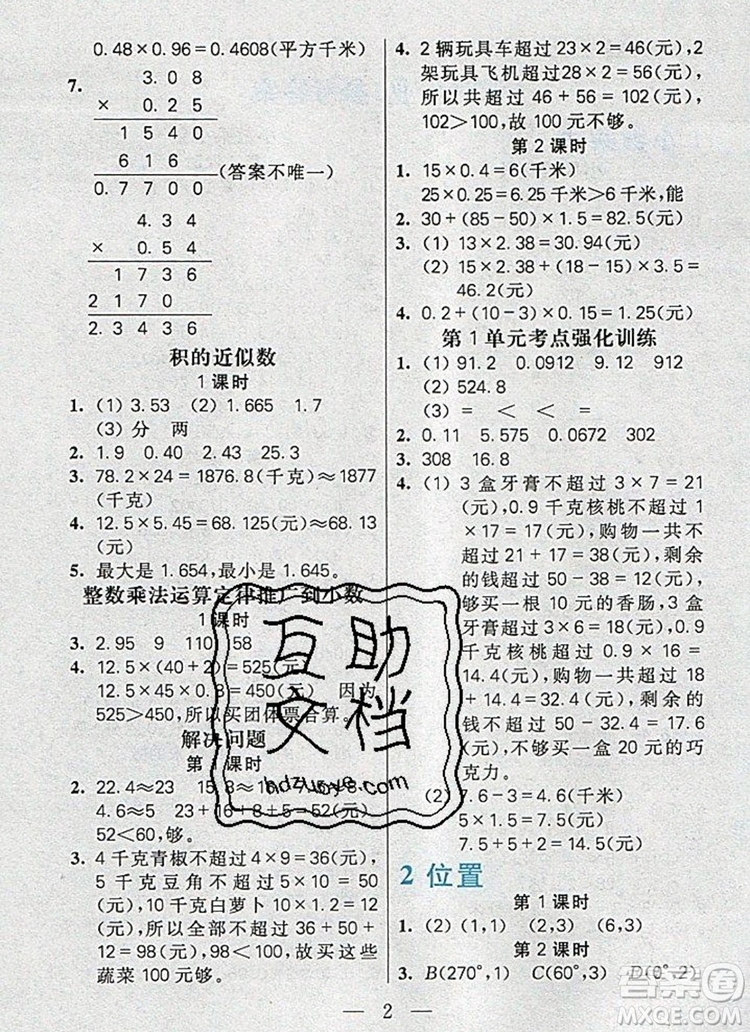 0.48×0.96=0.4608(平方千米)
7.
3.08
× 0.25
1540
616
0.7700(答案不唯一)
4.34
× 0.54
1736
2170
2.3436
积的近似数
1课时
1. (1) 3.53 (2) 1.665 1.7
(3) 分 两
2. 1.9 0.40 2.43 25.3
3. 78.2×24=1876.8(千克)≈1877
(千克)
4. 12.5×5.45=68.125(元)≈68.13
(元)
5. 最大是1.654,最小是1.645。
整数乘法运算定律推广到小数
1课时
3. 2.95 9 110 58
4. 12.5×(40+2)=525(元)
12.5×45×0.8=450(元) 因为
525>450,所以买团体票合算。
解决问题
第1课时
2. 22.4≈23 ≈16
4.6≈5 23+16+8+5=52(元)
62>52,够。
3. 4千克青椒不超过4×9=36(元),
5千克豆角不超过5×10=50
(元),2千克白萝卜不超过2×6=
12(元),所以全部不超过36+50+
12=98(元),98<100,故买这些
蔬菜100元够。
4. 2辆玩具车超过23×2=46(元),2
架玩具飞机超过28×2=56(元),
所以共超过46+56=102(元),
102>100,故100元不够。
第2课时
1. 15×0.4=6(千米)
25×0.25=6.25(千米)>6千米,能
2. 30+(85-50)×1.5=82.5(元)
3. (1) 13×2.38=30.94(元)
(2) 15×2.38+(18-15)×3.52=
46.2(元)
4. 0.2+(10-3)×0.15=1.25(元)
第1单元考点强化训练
1. (1) 91.2 0.0912 9.12 912
(2) 524.8
(3) = < < =
2. 0.11 5.575 0.0672 302
3. 308 16.8
4. (1) 3盒牙膏不超过3×7=21
(元),0.9千克核桃不超过1
×17=17(元),购物一共不
超过21+17=38(元),剩余
的钱超过50-38=12(元),
够买一根10元的香肠,3盒
牙膏超过3×6=18(元),0.9
千克核桃超过0.9×16=
14.4(元),购物一共超过18
+14.4=32.4(元),剩余的
钱不超过50-32.4=17.6
(元),不够买一盒20元的巧
克力。
(2) 7.6-3=4.6(千米)
5×1.5=7.5(元)
7.5+5+2=14.5(元)
2 位置
第1课时
1. (2) (1,1) (2,3) (6,3)
第2课时
3. B(270°,1) C(60°,3) D(0°,2)
2
互助
文档
hdzuoye.com
答案圈
MXQE.COM